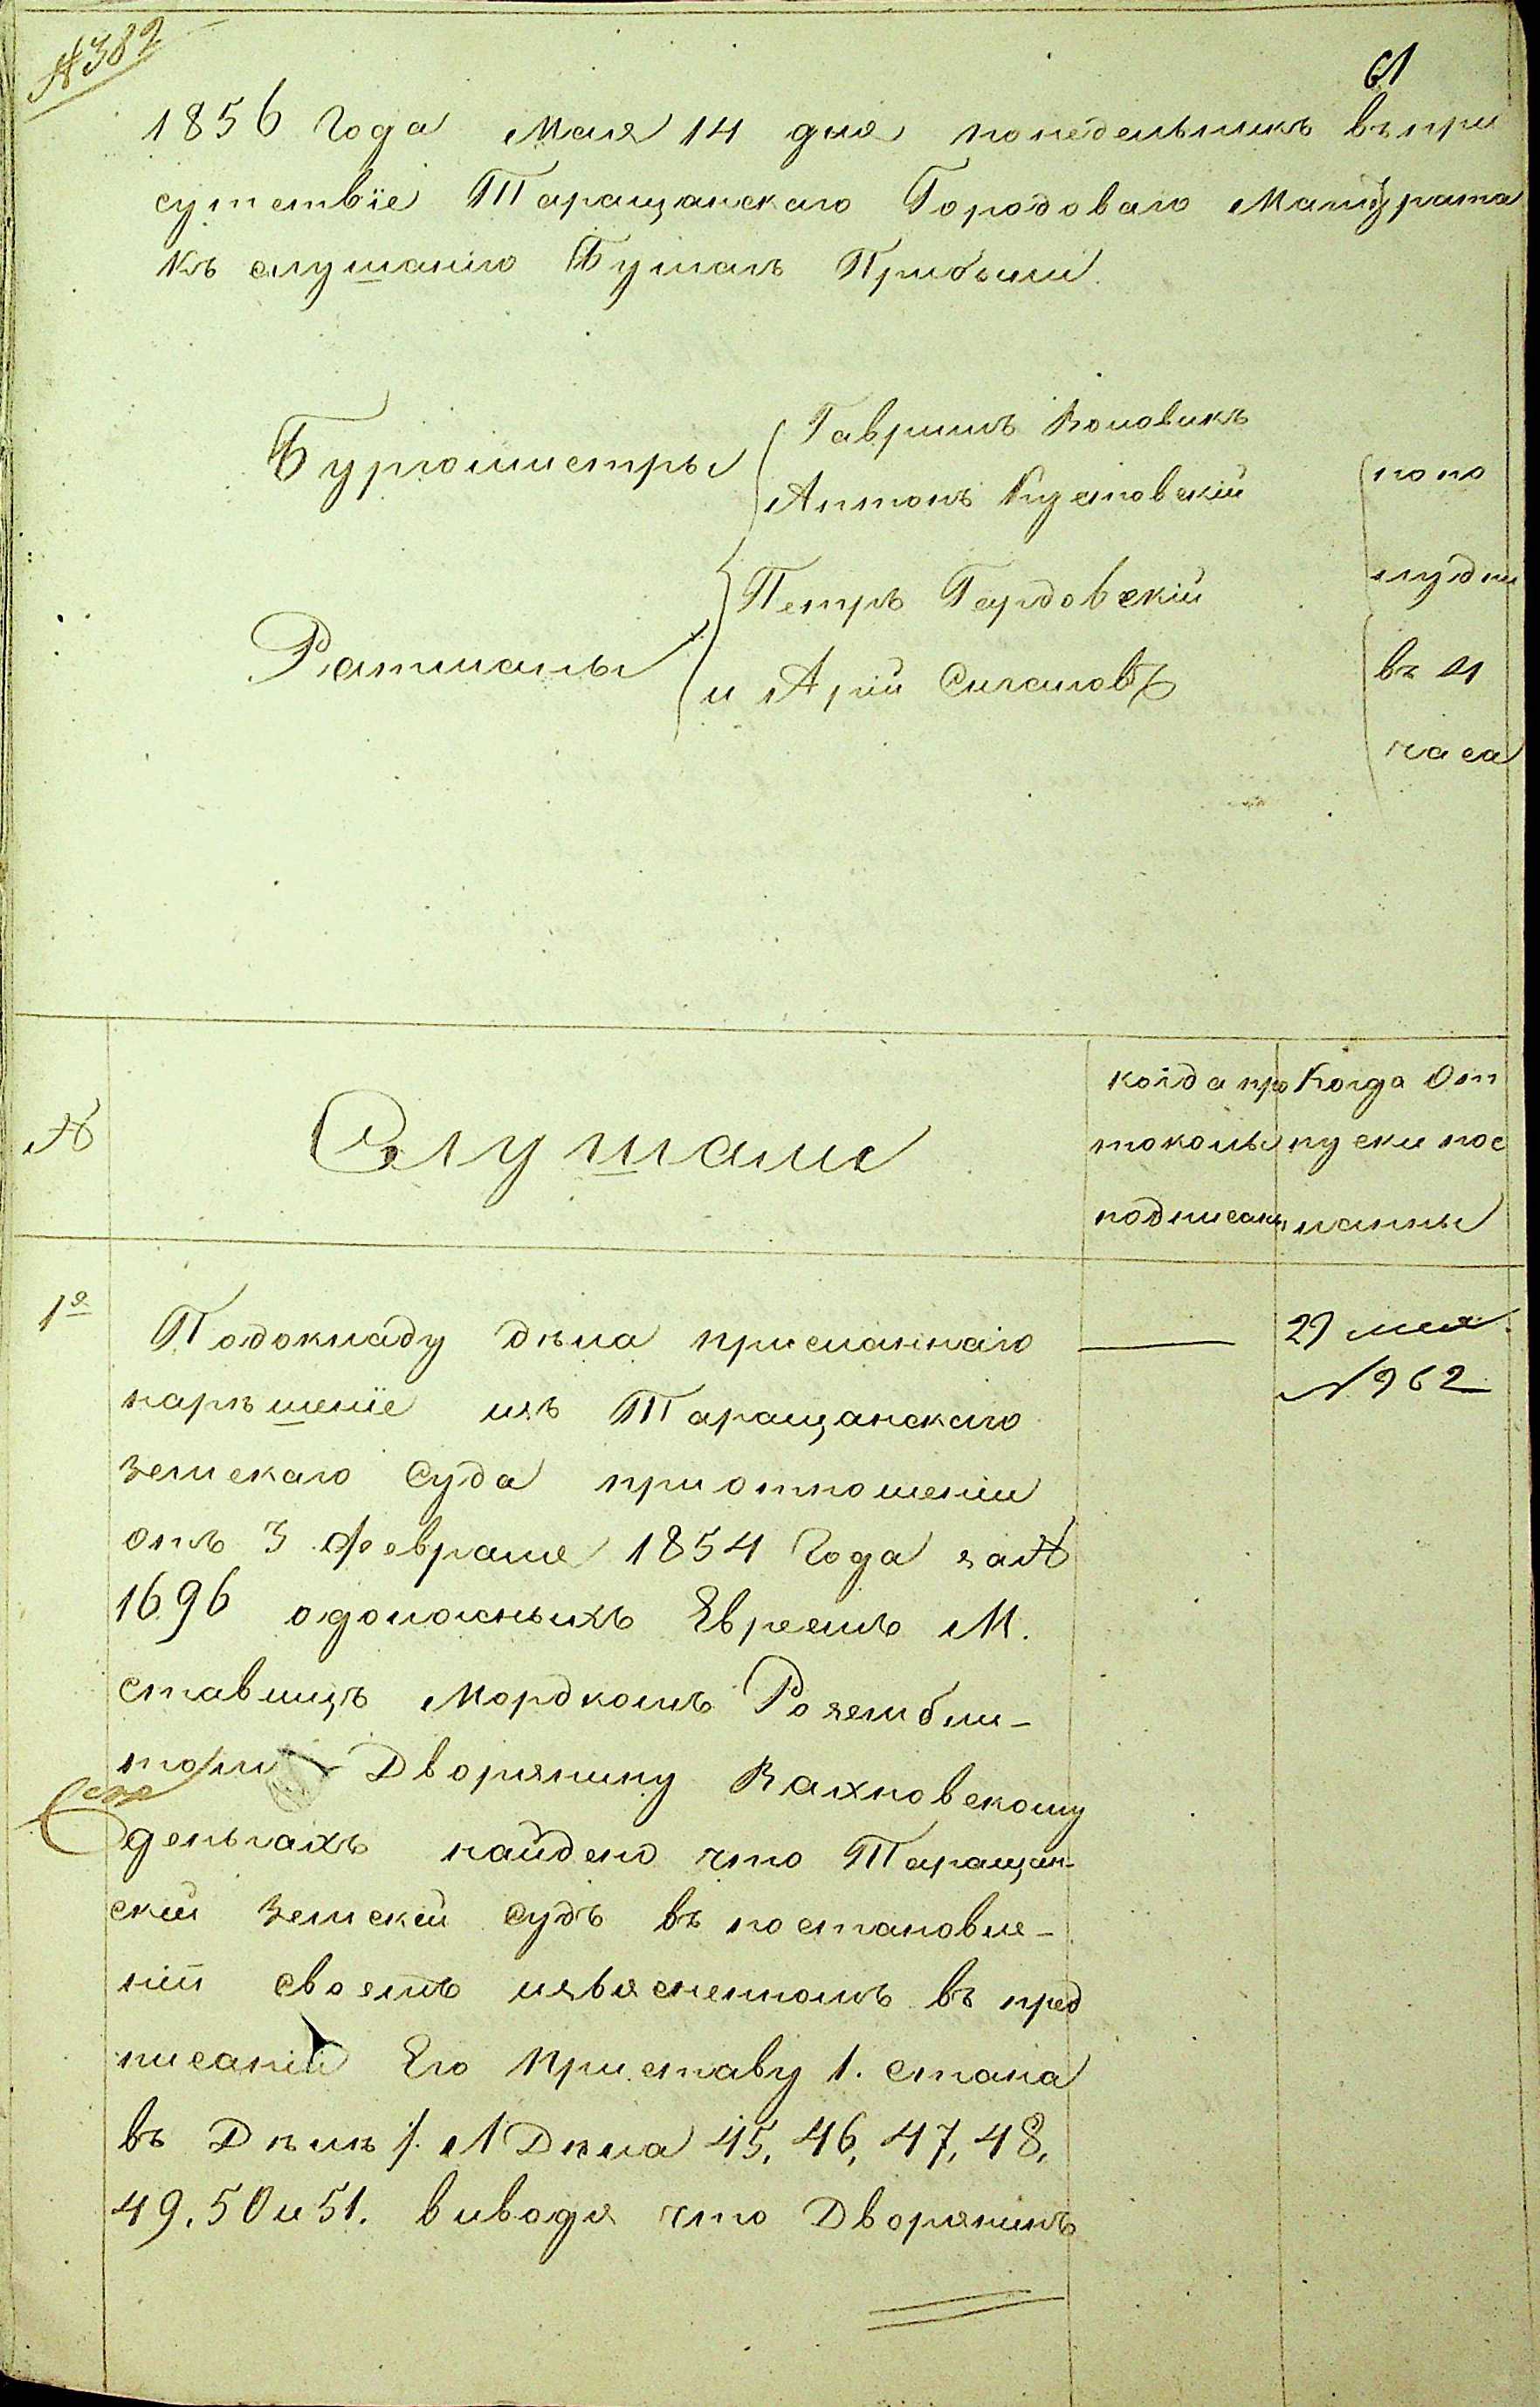 №382
61
1856 Года Мая 14 дня понедельникъ въ при
сутствіе Таращанскаго Городоваго Магистрата
къ слушанію Бумагъ Прибыли
Бургомистры
Гаврилъ Воловикъ
Антонъ
Ратманы
Петръ Гардовскій
и Арій Сигаловъ
попо
лудни
въ 4
часа
№
Слушали
когда про
токолы
подписаны
Когда От
пуски пос
ланны
1е
Подокладу дѣла присланнаго
нарѣшеніе изъ Таращанскаго
земскаго Суда приотношеніи
отъ 3 февраля 1854 Года за№
1696 одолжныхъ Евреемъ М.
ставищъ Мордкомъ Розембли-
томъ Дворянину Вахновскому
деньгахъ найдено что Таращан-
скій земскій судъ въ постановле-
ніи своемъ изъясненномъ въ пред
писаніи Его Приставу 1. стана
въ Дѣлѣ /. Л Дѣла 45, 46, 47, 48,
49, 50 и 51. виводя что Дворянинъ
29 мая
№ 962